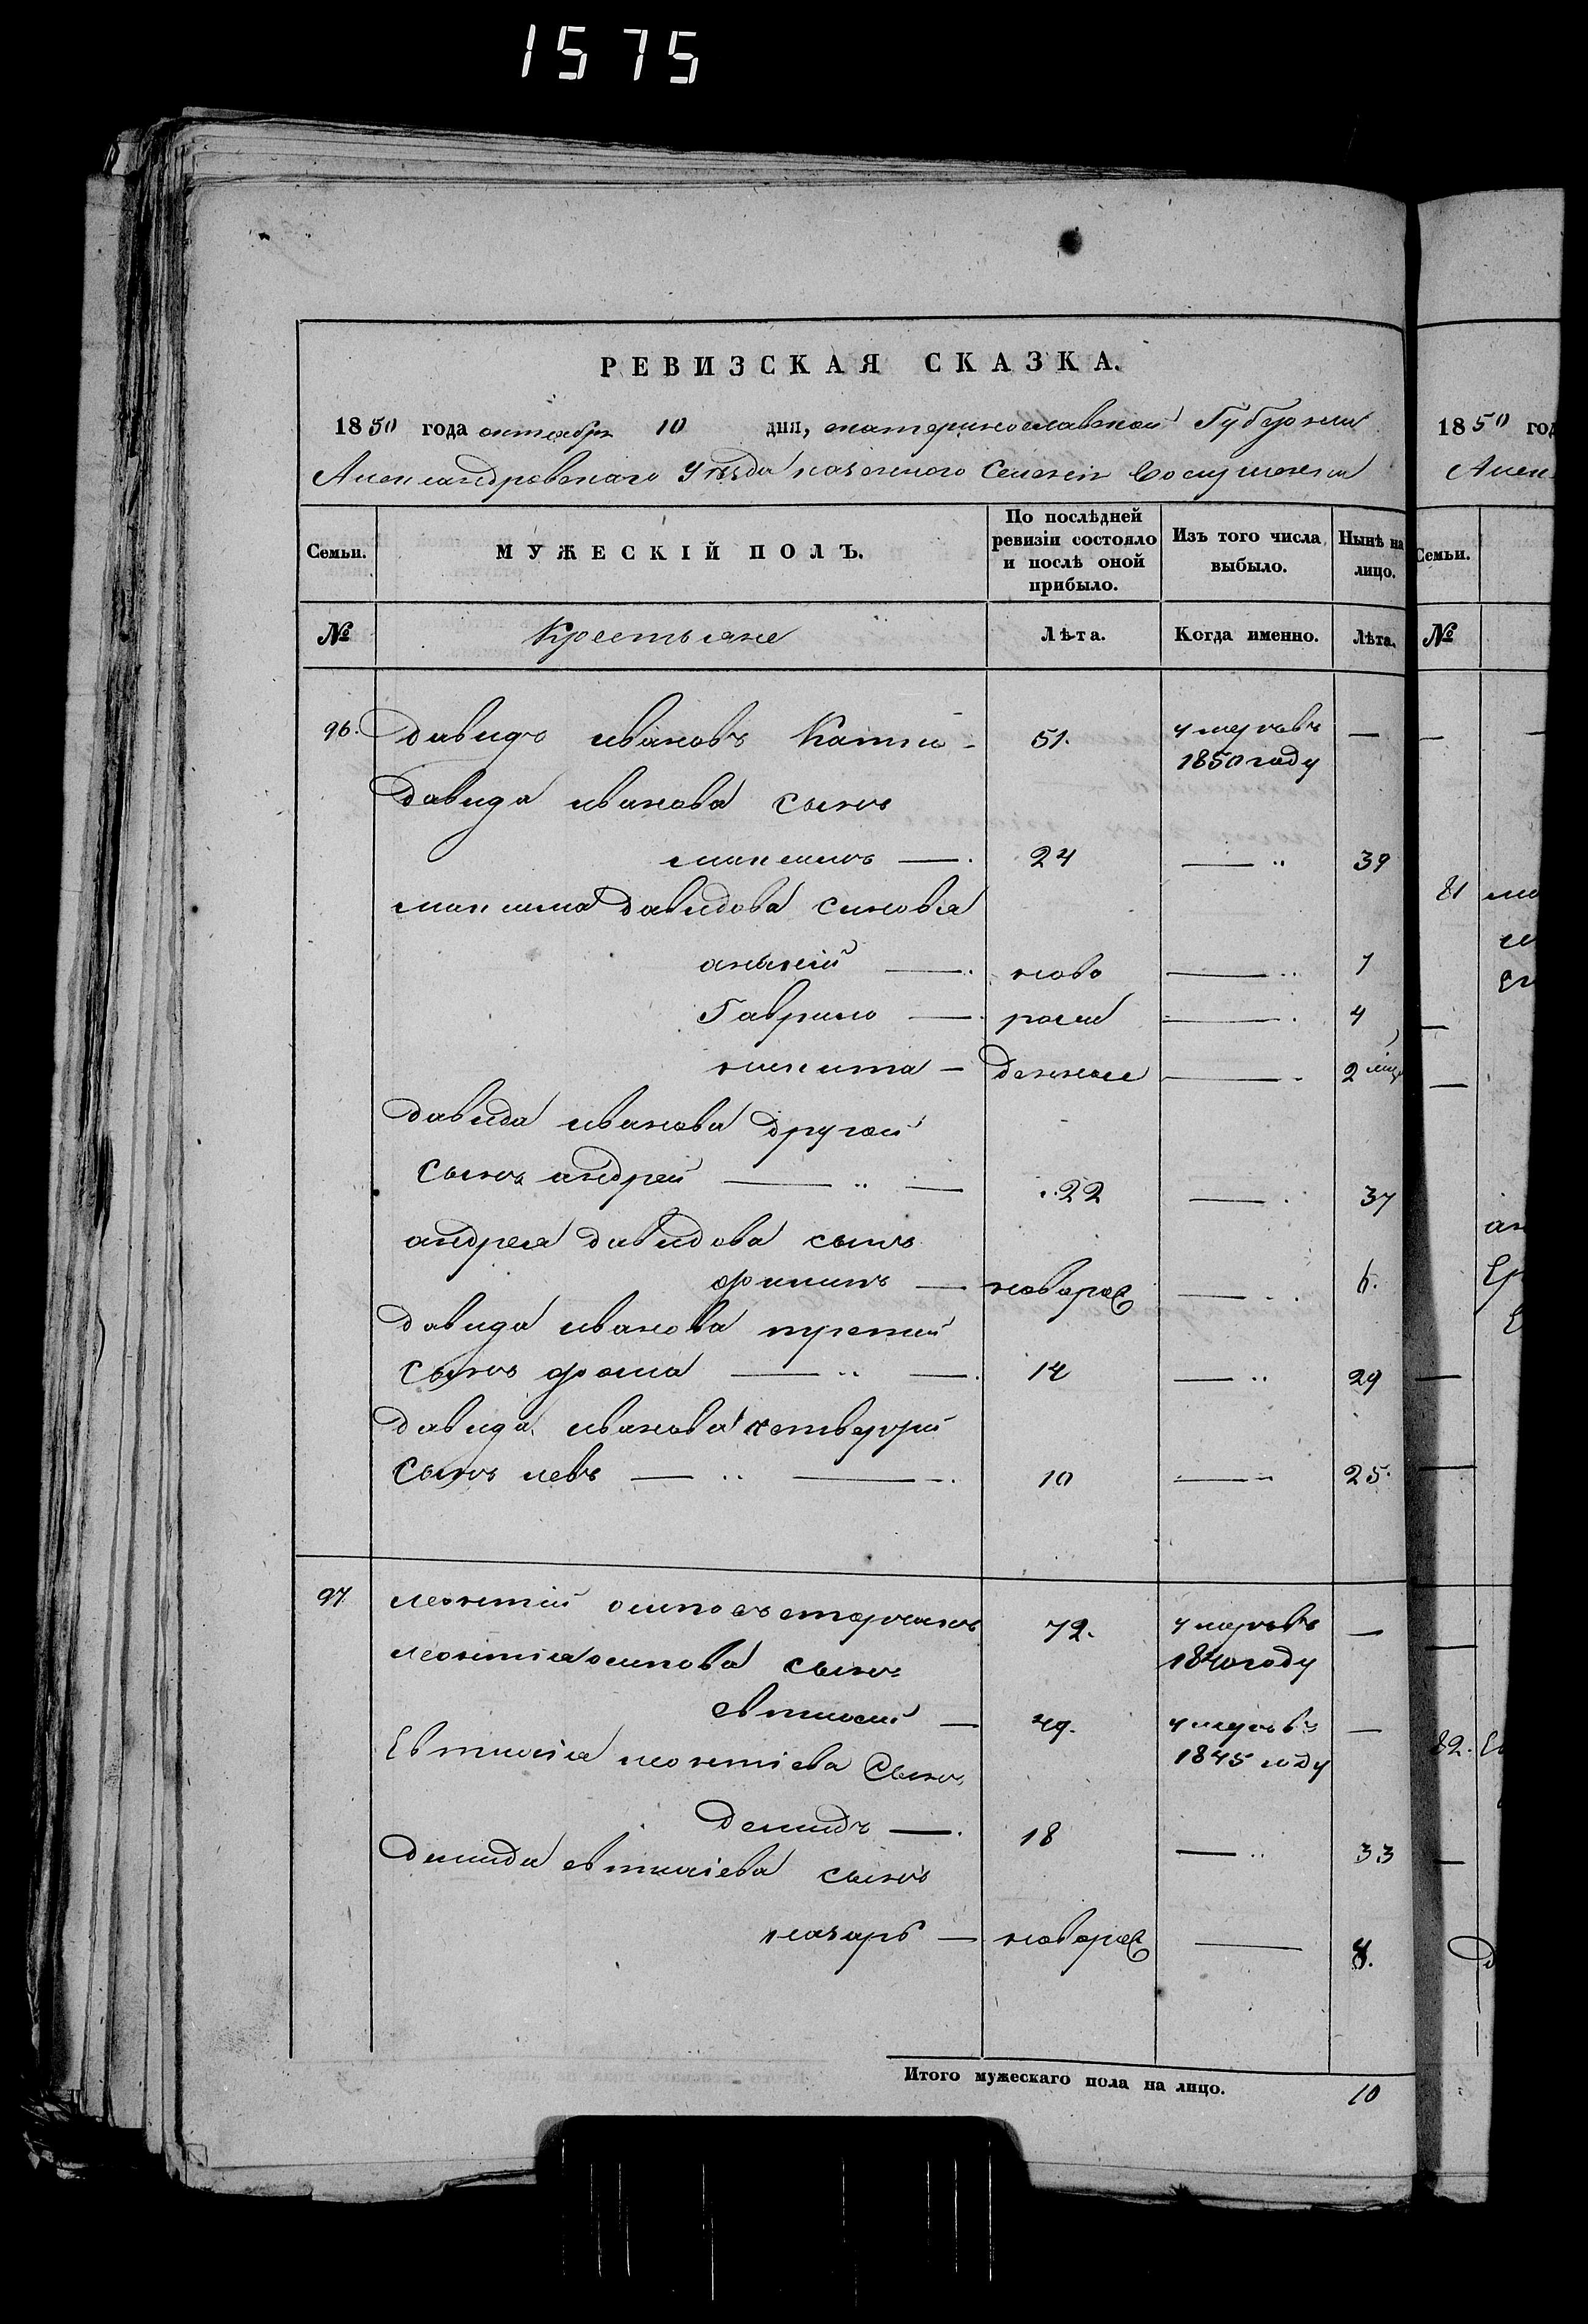 1575
РЕВИЗСКАЯ СКАЗКА.
1850 года октября 10 дня, екатеринославской Губернии
Александровскаго Уезда казенного Селения
Семьи. МУЖЕСКІЙ ПОЛЪ. По послѣдней ревизіи состояло и послѣ оной прибыло. Изъ того числа выбыло. Нынѣ на лицо.
№ Крестьяне Лѣта. Когда именно. Лѣта.
96. Давидъ ивановъ 51. умеръ въ —
1850 году
Давида иванова сынъ
максимъ — 24 — 39
максима Давидова синовья
ананій — ново — 7
Гаврило — рож — 4
никита — денные — 2
Давида иванова другой
сынъ андрей — 22 — 37
андрея давидова сынъ
филипъ — новорож — 6.
Давида иванова третий
сынъ фома — 14 — 29
Давида иванова четвертій
сынъ левъ — 10 — 25.
97 леонтій осиповъ 72. умеръ въ —
1840 году
леонтія осипова сынъ
евтихій — 49. умеръ въ —
1845 году
Евтихія леонтіева Сынъ
Демидъ — 18 — 33
Демида евтихіева сынъ
назаръ — новорож — 8.
Итого мужескаго пола на лицо. 10
1850 год
Алек
Семьи.
№
81
82.